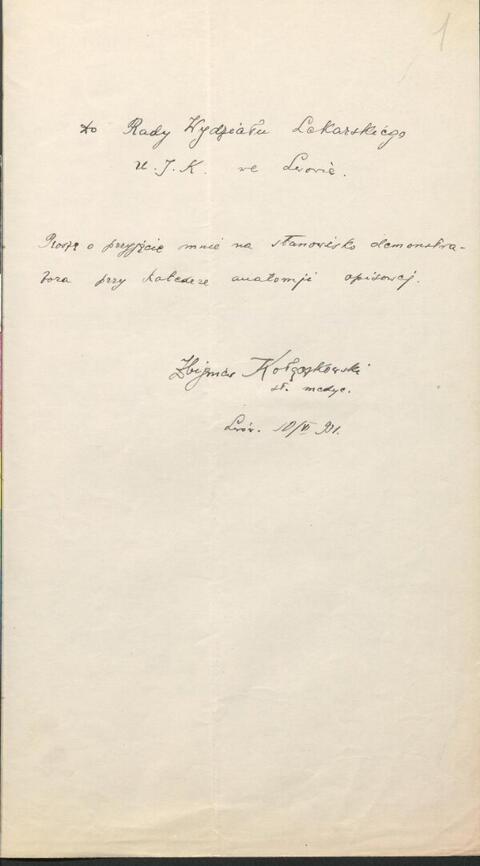 1
do Rady Wydziału Lekarskiego
U. J. K. we Lwowie.
Proszę o przyjęcie mnie na stanowisko demonstra-
tora przy katedrze anatomji opisowej.
st. medyc.
Lwów. 10/VI 931.